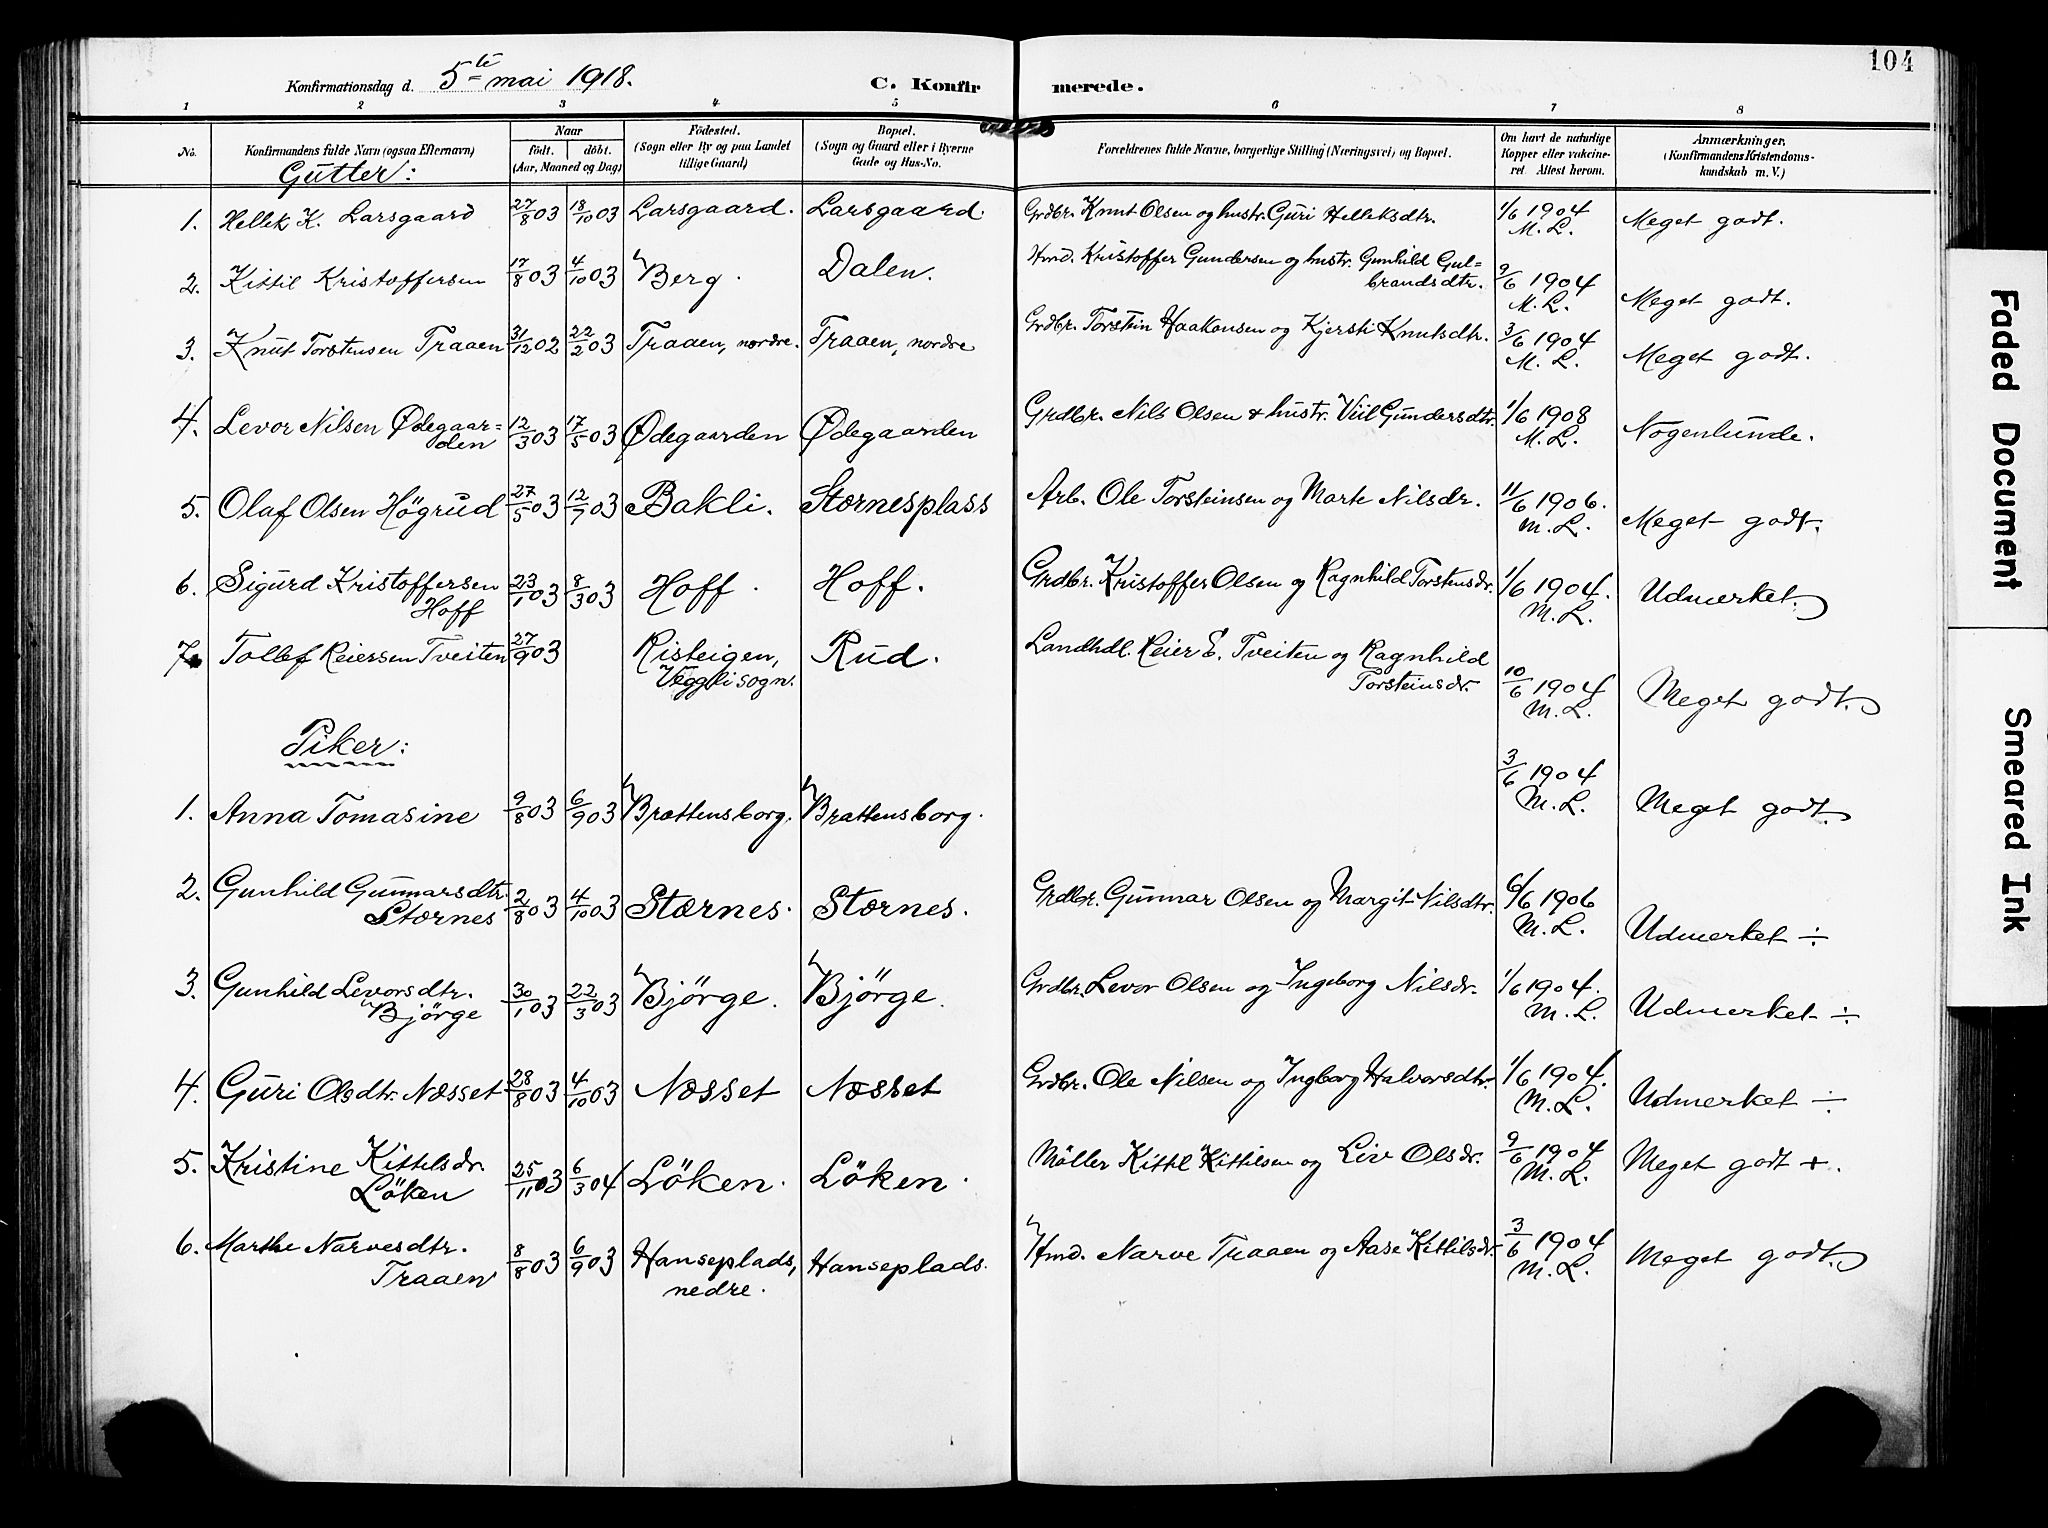 104
Konfirmationsdag d. 5te mai 1918. C. Konfirmerede.
1 2 3 4 5 6 7 8
No. Konfirmandens fulde Navn (ogsaa Efternavn) Naar født. døbt. (Aar, Maaned og Dag) Födested. (Sogn eller By og paa Landet tillige Gaard) Bopæl. (Sogn og Gaard eller i Byerne Gade og Hus-No. Forældrenes fulde Navne, borgerlige Stilling (Næringsvei) og Bopæl. Om havt de naturlige Kopper eller vakcineret. Attest herom. Anmærkninger. (Konfirmandens Kristendomskundskab m. V.)
Gutter:
1. Hellek K. Larsgaard 27/8 03 18/10 03 Larsgaard. Larsgaard. Grdbr. Knut Olsen og hustr. Guri Helleksdtr. 1/6 1904 M. L. Meget godt.
2. Kittil Kristoffersen 17/8 03 4/10 03 Berg. Dalen. Hmd. Kristoffer Gundersen og hustr. Gunhild Gulbrandsdtr. 9/6 1904 M. L. Meget godt.
3. Knut Torstensen Traaen 31/12 02 22/2 03 Traaen, nordre. Traaen, nordre Grdbr. Torstein Haakonsen og Kjersti Knutsdtr. 3/6 1904 M. L. Meget godt.
4. Levor Nilsen Ødegaarden 12/3 03 17/5 03 Ødegaarden Ødegaarden Grdbr. Nils Olsen & hustr. Viil Gundersdtr. 1/6 1908 M. L. Nogenlunde.
5. Olaf Olsen Högrud 27/5 03 12/7 03 Bakli. Stærnesplass Arb. Ole Torsteinsen og Marte Nilsdr. 11/6 1906. M. L. Meget godt.
6. Sigurd Kristoffersen Hoff 23/1 03 8/3 03 Hoff. Hoff. Grdbr. Kristoffer Olsen og Ragnhild Torstensdr. 1/6 1904. M. L. Udmerket.
7. Tollef Reiersen Tveiten 27/9 03 Risteigen, Veggli sogn. Rud. Landhdl. Reier E. Tveiten og Ragnhild Torsteinsdr. 10/6 1904 M. L. Meget godt.
Piker:
1. Anna Tomasine 9/8 03 6/9 03 Brattensborg. Brattensborg. 3/6 1904 M. L. Meget godt.
2. Gunhild Gunnarsdtr. Stærnes 2/8 03 4/10 03 Stærnes. Stærnes. Grdbr. Gunnar Olsen og Margit Nilsdtr. 6/6 1906 M. L. Udmerket ÷
3. Gunhild Levorsdtr. Bjørge 30/1 03 22/3 03 Björge. Björge. Grdbr. Levor Olsen og Ingeborg Nilsdr. 1/6 1904. M. L. Udmerket ÷
4. Guri Olsdtr. Næsset 28/8 03 4/10 03 Næsset Næsset Grdbr. Ole Nilsen og Ingborg Halvorsdtr. 1/6 1904. M. L. Udmerket ÷
5. Kristine Kittilsdr. Löken 25/11 03 6/3 04 Löken. Löken. Möller Kittil Kittilsen og Liv Olsdr. 9/6 1904 M. L. Meget godt +.
6. Marthe Narvesdtr. Traaen 8/8 03 6/9 03 Hanseplads, nedre. Hanseplads. Hmd. Narve Traaen og Aase Kittilsdr. 3/6 1904 M. L. Meget godt.
Faded Document
Smeared Ink